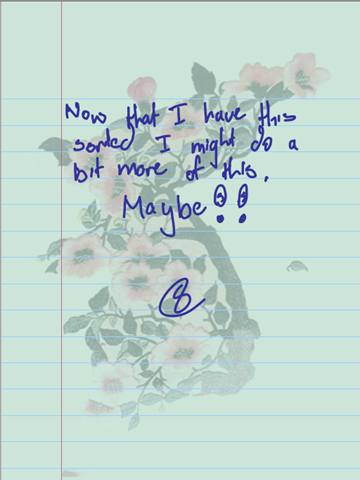 Now that I have this
sorted I might do a
bit more of this.
Maybe!!
8